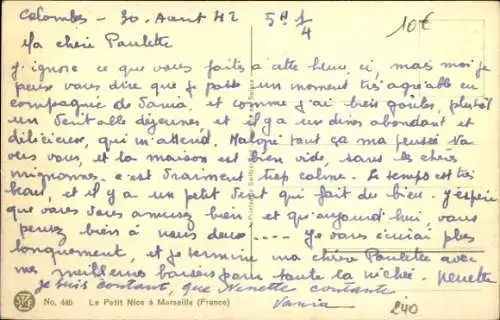 Colombes - 30. Aout 42 5H 1/4
10€
Ma chère Paulette
J'ignore ce que vous faites à cette heure ci, mais moi je
peux vous dire que je passe un moment très agréable en
compagnie de Vania. et comme j'ai bien goûter, plutôt
un véritable déjeuner et il y a un dîner abondant et
délicieux, qui m'attend. Malgré tout ça ma pensée va
vers vous, et la maison est bien vide, sans les chères
mignonnes. c'est vraiment trop calme. Le temps est très
beau, et il y a un petit vent qui fait du bien. J'espère
que vous vous amusez bien et qu'aujourd'hui, vous
pensez bien à nous deux .... Je vous écrirai plus
longuement, et je termine ma chère Paulette avec
mes meilleures baisers pour toute la nichée. Nenette
je suis contente, que Nenette contente
Vania
No. 446 Le Petit Nice à Marseille (France)
240